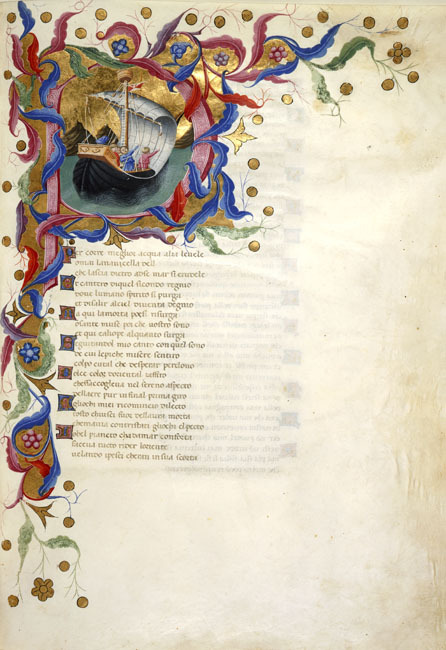 Per correr meglior acqua alce levele
omai lanavicella del
che lascia dietro adse mar si crudele
Et cantero diquel secondo regno
dove lumano spirito si purga
et disalir alciel diventa degno
Ma qui lamorta poesi risurga
osante muse poi che vostro sono
et qui caliope alquanto surga
Seguitandol mio canto con quel sono
de cui lepiche misere sentiro
colpo cotal che desperar perdono
Dolce color doriental zaffiro
nel sereno aspecto
dellaere pur infinal primo giro
Agliochi miei ricomincio dilecto
tosto chiusci fuor dellaura morta
chemavia contristati gliochi elpecto
Lobel pianeto chadamar conforta
faceva tucto rider loriente
velando ipesci cheran insua scorta